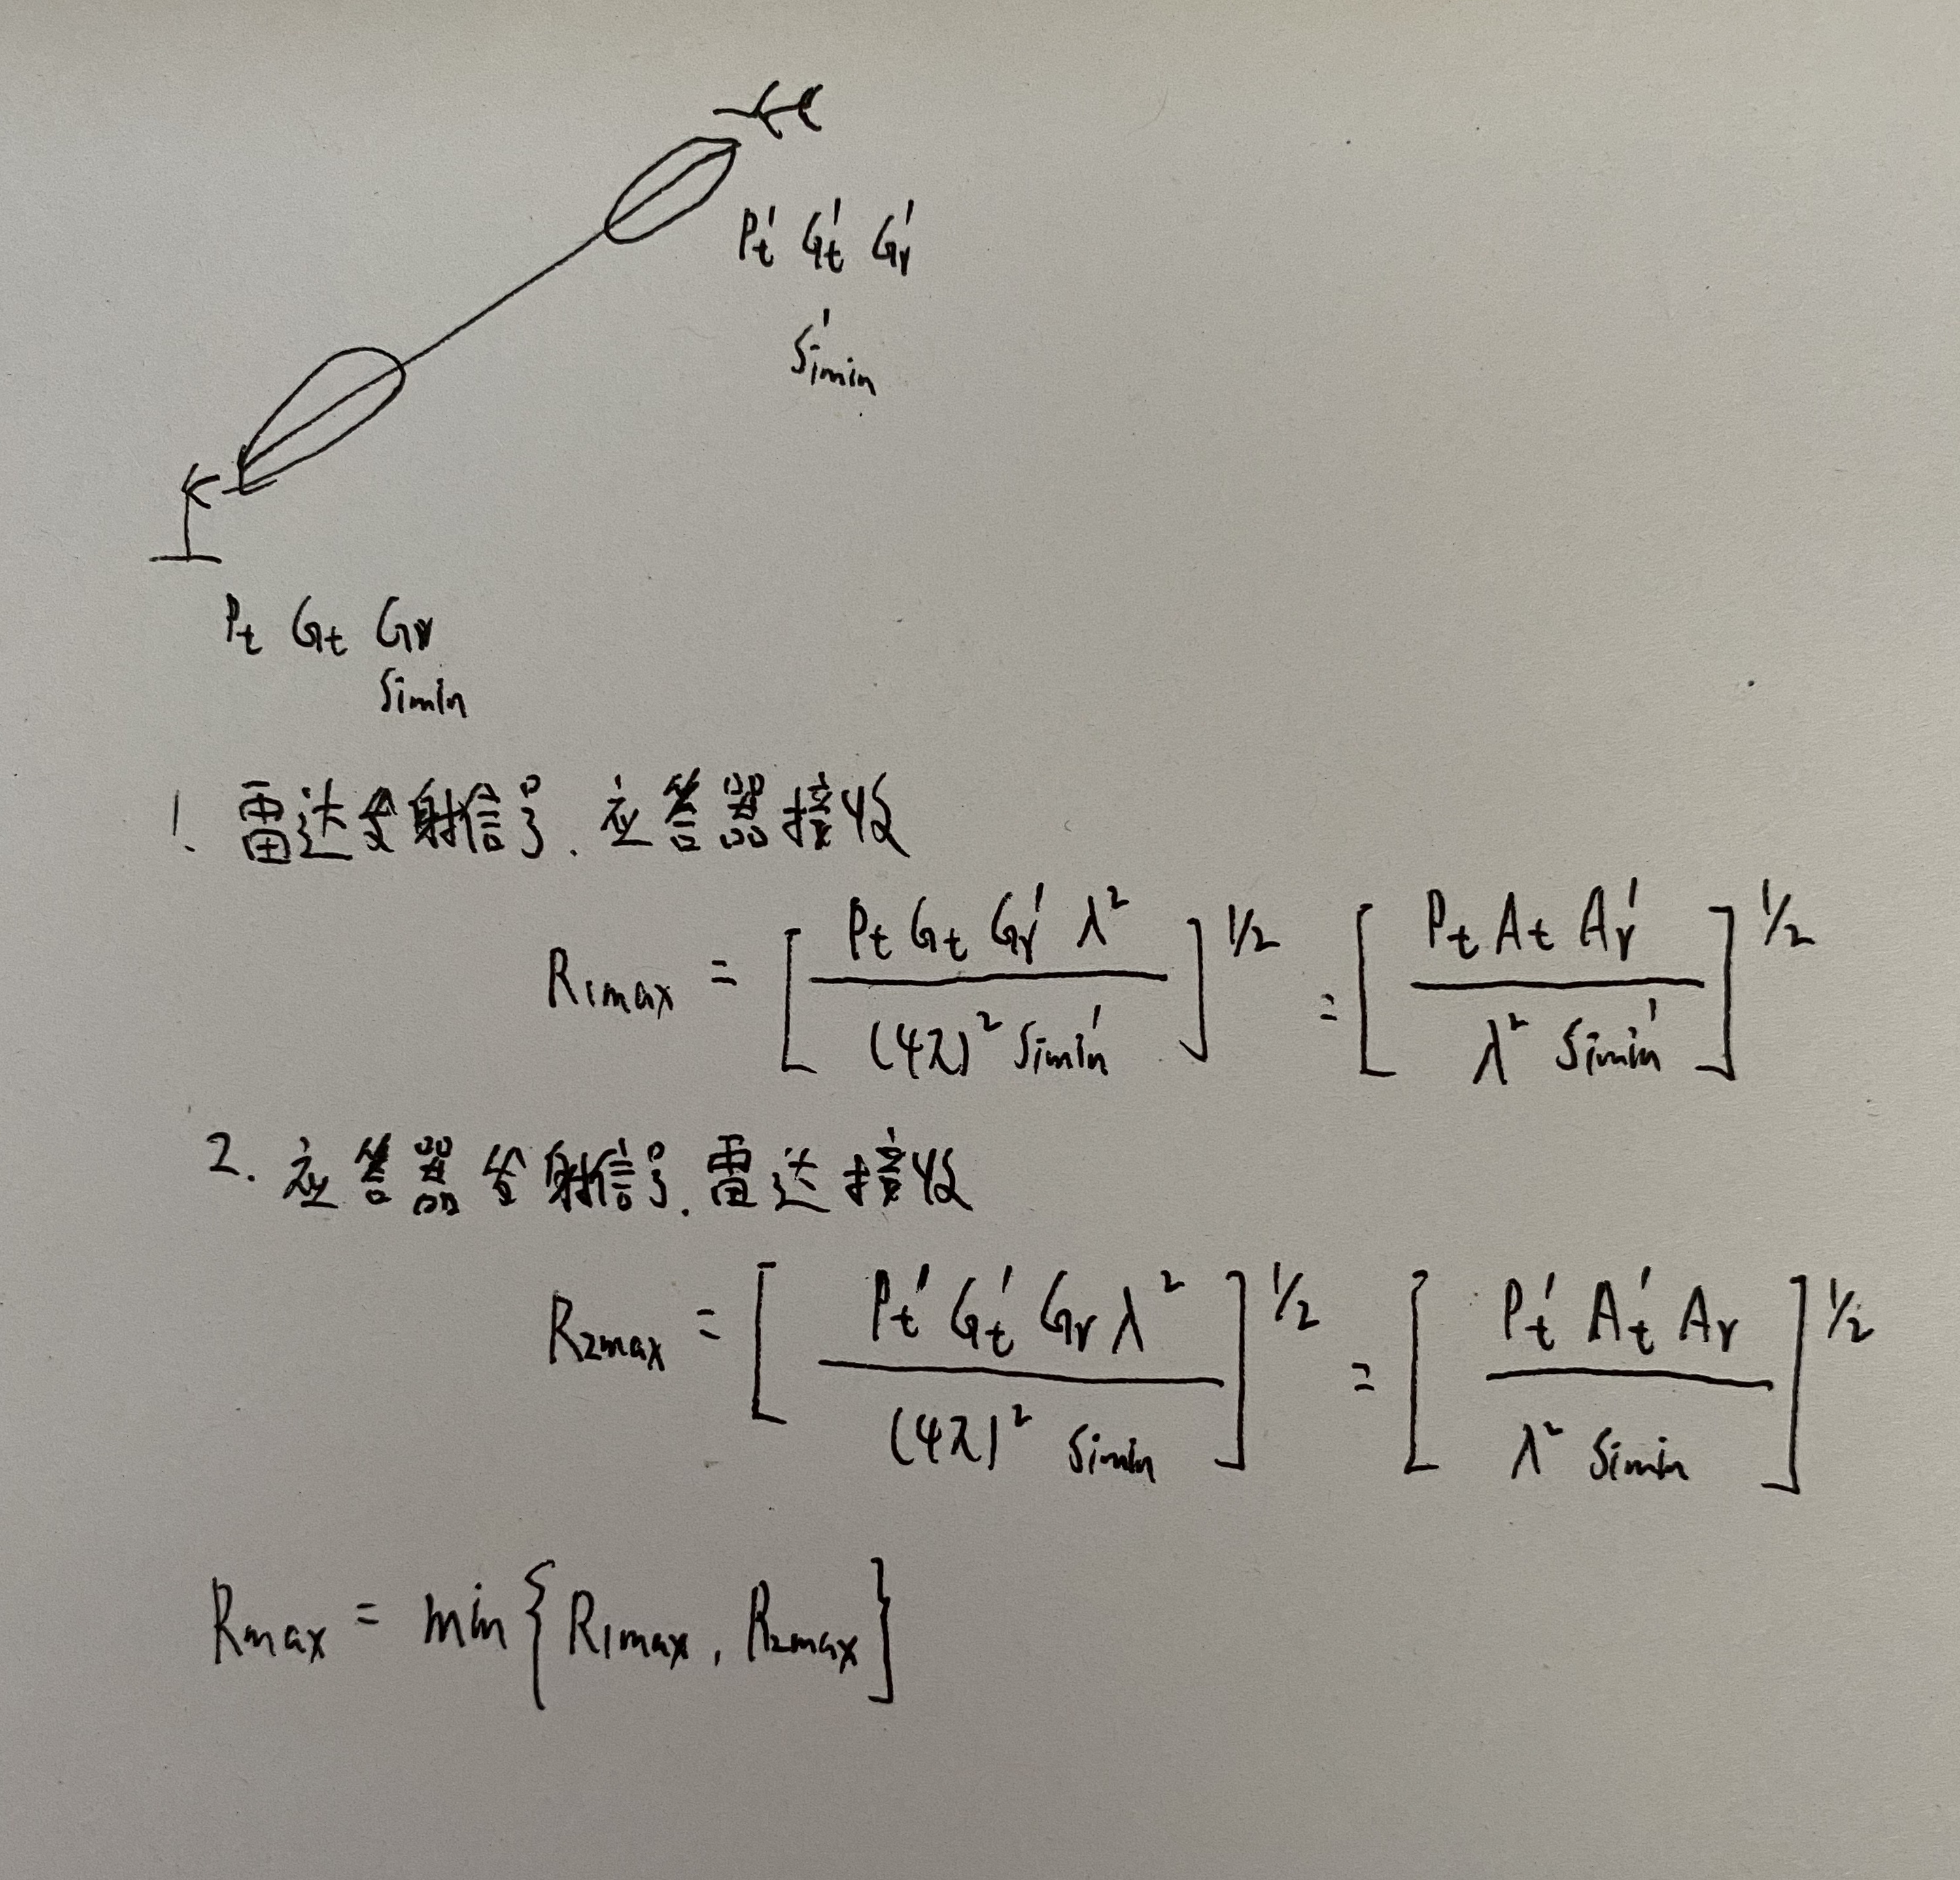 Pt' Gt' Gr'
Simin'
Pt Gt Gr
Simin
1. 雷达发射信号. 应答器接收
R1max = [ Pt Gt Gr' λ² / (4π)² Simin' ]^1/2 = [ Pt At Ar' / λ² Simin' ]^1/2
2. 应答器发射信号. 雷达接收
R2max = [ Pt' Gt' Gr λ² / (4π)² Simin ]^1/2 = [ Pt' At' Ar / λ² Simin ]^1/2
Rmax = min { R1max, R2max }